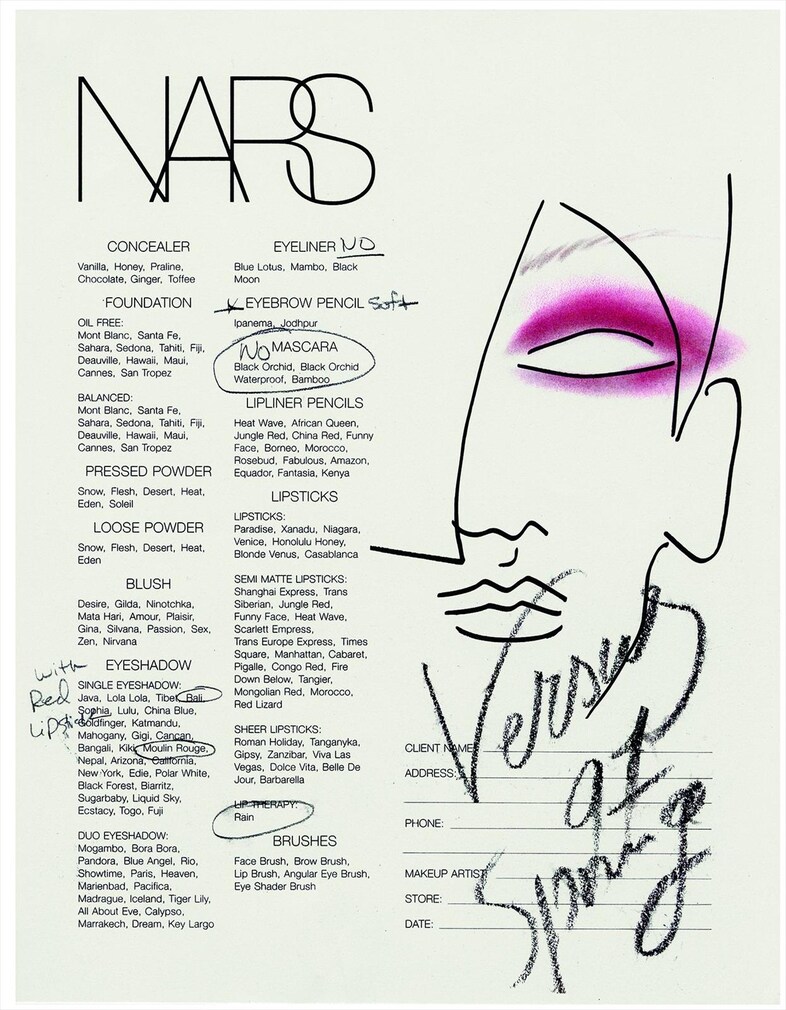 NARS
CONCEALER
Vanilla, Honey, Praline,
Chocolate, Ginger, Toffee
FOUNDATION
OIL FREE:
Mont Blanc, Santa Fe,
Sahara, Sedona, Tahiti, Fiji,
Deauville, Hawaii, Maui,
Cannes, San Tropez
BALANCED:
Mont Blanc, Santa Fe,
Sahara, Sedona, Tahiti, Fiji,
Deauville, Hawaii, Maui,
Cannes, San Tropez
PRESSED POWDER
Snow, Flesh, Desert, Heat,
Eden, Soleil
LOOSE POWDER
Snow, Flesh, Desert, Heat,
Eden
BLUSH
Desire, Gilda, Ninotchka,
Mata Hari, Amour, Plaisir,
Gina, Silvana, Passion, Sex,
Zen, Nirvana
with
Red
Lipstick
EYESHADOW
SINGLE EYESHADOW:
Java, Lola Lola, Tibet, Bali,
Sophia, Lulu, China Blue,
Goldfinger, Katmandu,
Mahogany, Gigi, Cancan,
Bangali, Kiki, Moulin Rouge,
Nepal, Arizona, California,
New York, Edie, Polar White,
Black Forest, Biarritz,
Sugarbaby, Liquid Sky,
Ecstacy, Togo, Fuji
DUO EYESHADOW:
Mogambo, Bora Bora,
Pandora, Blue Angel, Rio,
Showtime, Paris, Heaven,
Marienbad, Pacifica,
Madrague, Iceland, Tiger Lily,
All About Eve, Calypso,
Marrakech, Dream, Key Largo
EYELINER NO
Blue Lotus, Mambo, Black
Moon
EYEBROW PENCIL Soft
Ipanema, Jodhpur
NO MASCARA
Black Orchid, Black Orchid
Waterproof, Bamboo
LIPLINER PENCILS
Heat Wave, African Queen,
Jungle Red, China Red, Funny
Face, Borneo, Morocco,
Rosebud, Fabulous, Amazon,
Equador, Fantasia, Kenya
LIPSTICKS
LIPSTICKS:
Paradise, Xanadu, Niagara,
Venice, Honolulu Honey,
Blonde Venus, Casablanca
SEMI MATTE LIPSTICKS:
Shanghai Express, Trans
Siberian, Jungle Red,
Funny Face, Heat Wave,
Scarlett Empress,
Trans Europe Express, Times
Square, Manhattan, Cabaret,
Pigalle, Congo Red, Fire
Down Below, Tangier,
Mongolian Red, Morocco,
Red Lizard
SHEER LIPSTICKS:
Roman Holiday, Tanganyka,
Gipsy, Zanzibar, Viva Las
Vegas, Dolce Vita, Belle De
Jour, Barbarella
LIP THERAPY:
Rain
BRUSHES
Face Brush, Brow Brush,
Lip Brush, Angular Eye Brush,
Eye Shader Brush
Versus
CLIENT NAME
ADDRESS:
PHONE:
MAKEUP ARTIST
STORE:
DATE: